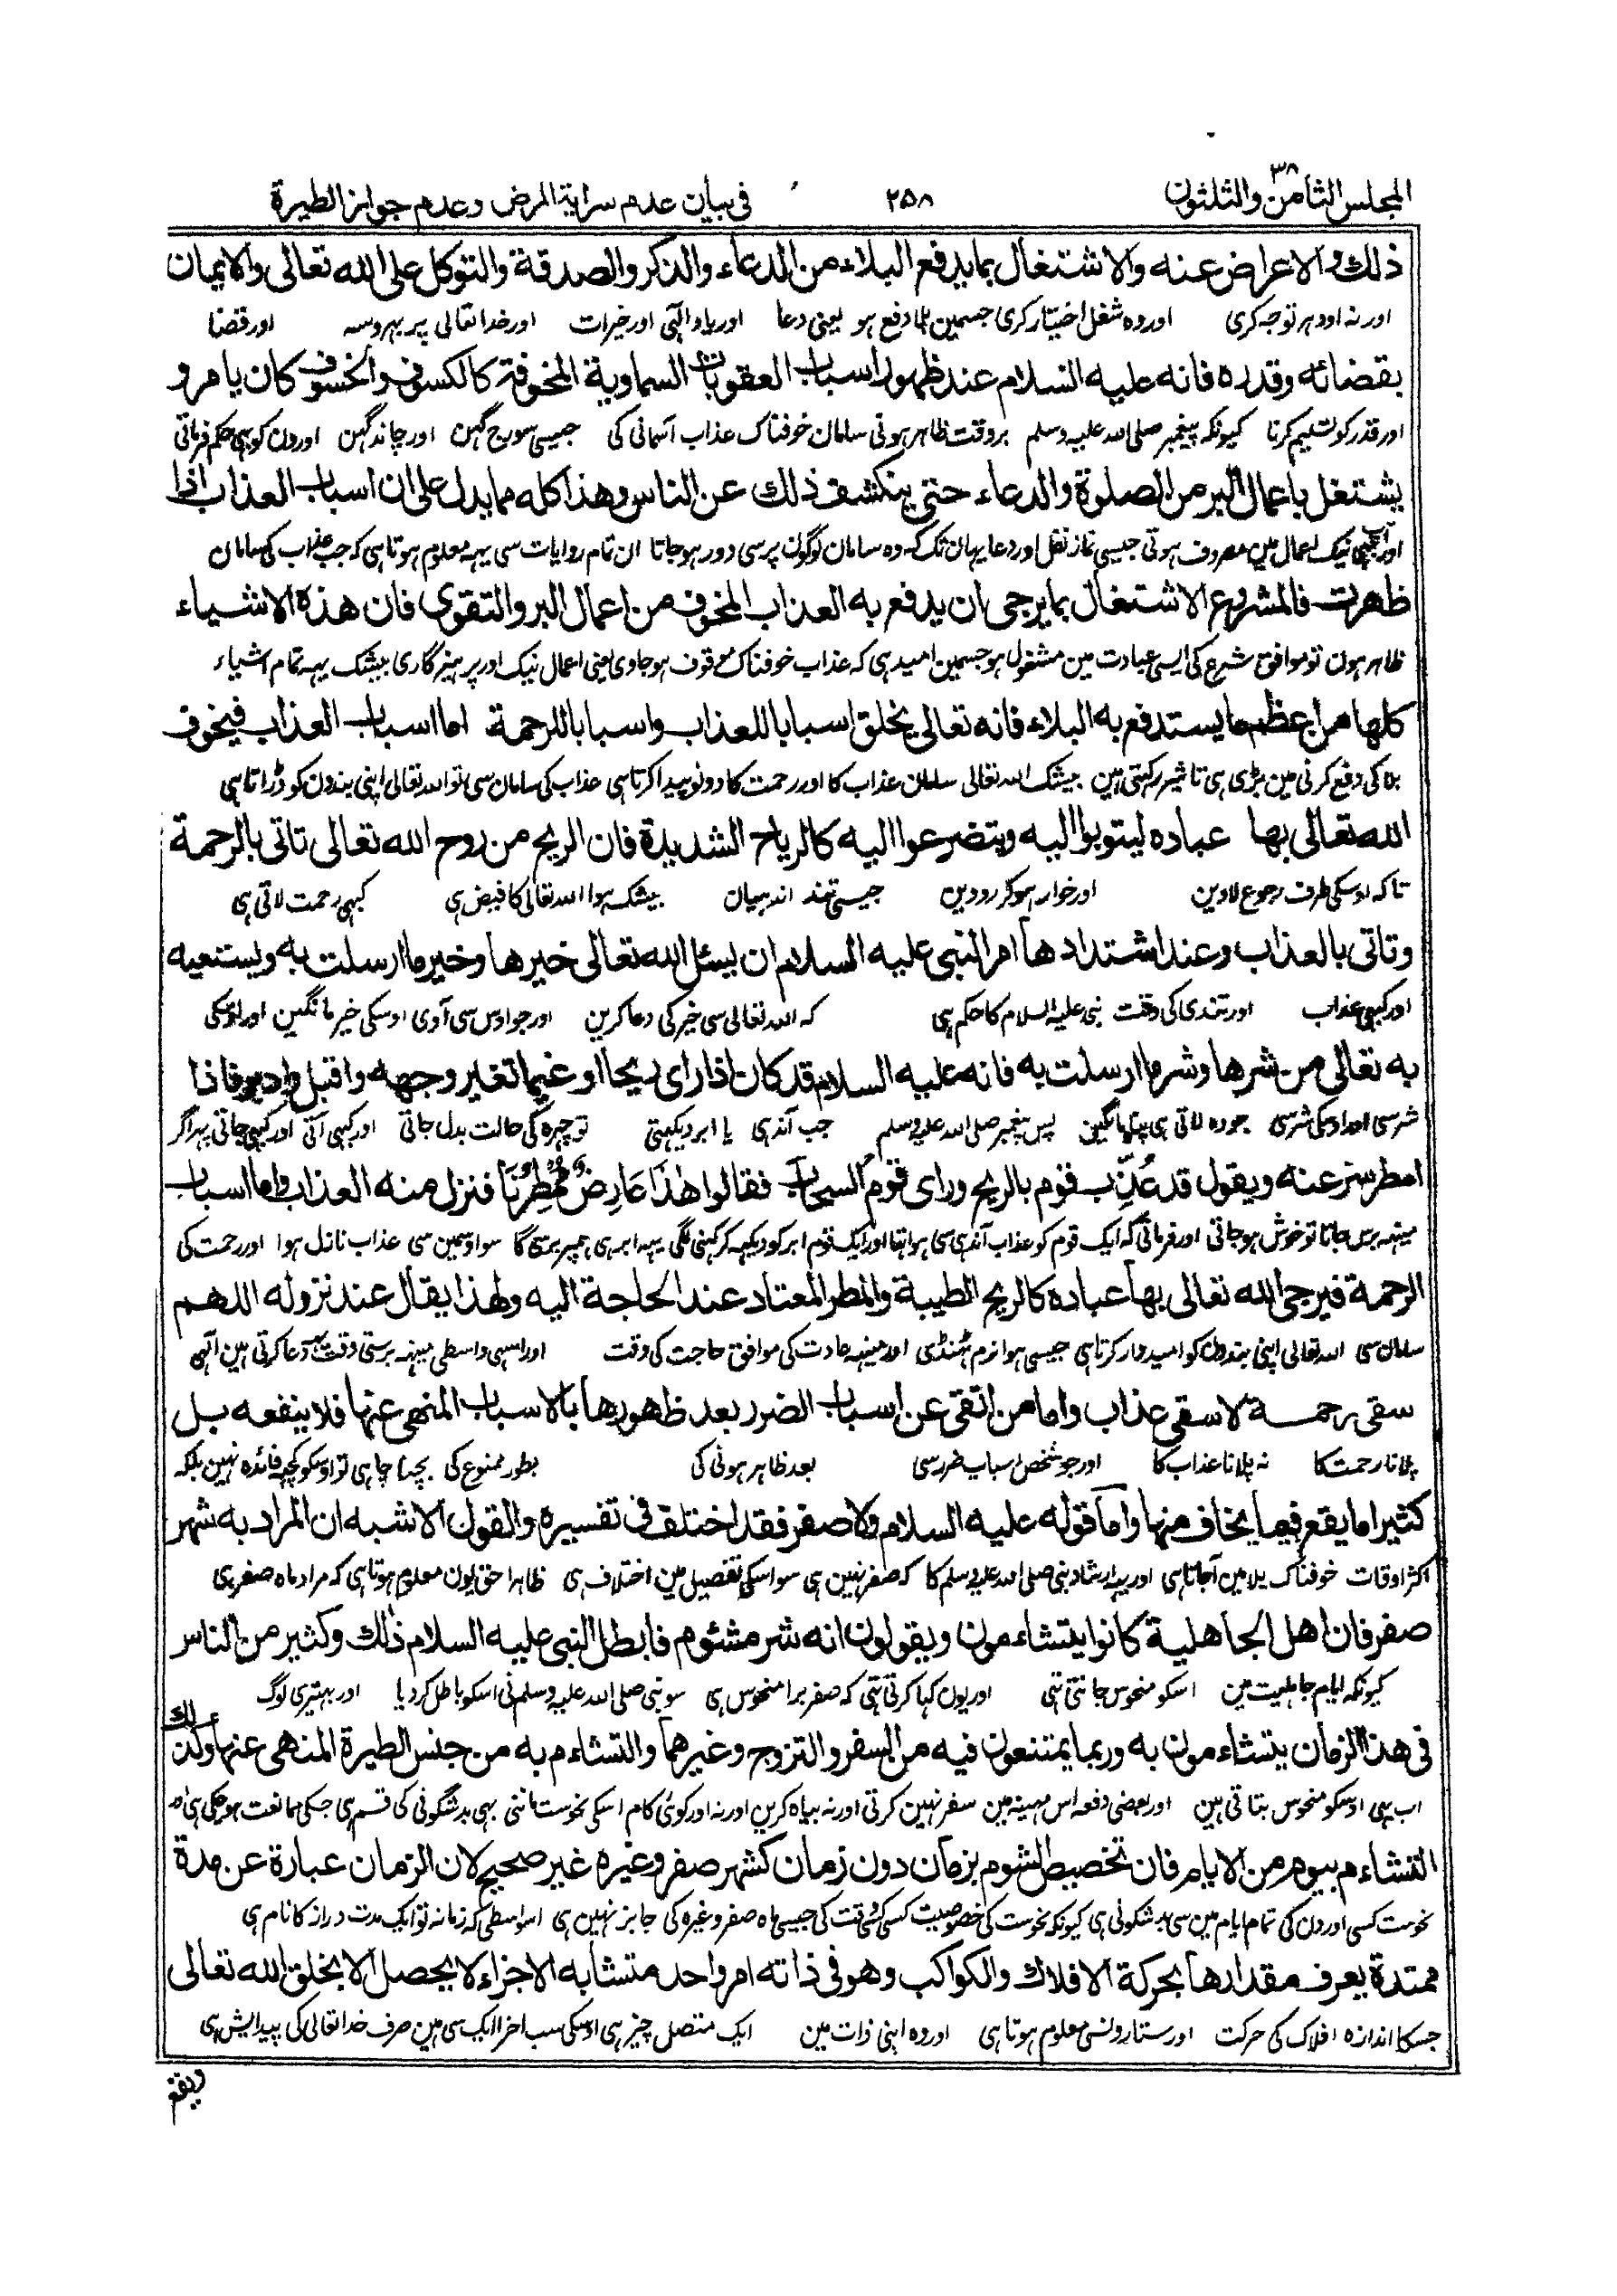 المجلس الثامن والثلثون ۳۸
۲۵۸
فی بیان عدم سرایة المرض وعدم جواز الطیرة
ذلك والاعراض عنه والاشتغال بما یدفع البلاء من الدعاء والذكر والصدقة والتوكل علی الله تعالی والایمان
اور نہ اودہر توجہ کری اور وہ شغل اختیار کری جسمین بلا دفع ہو یعنی دعا اور یاد الٰہی اور خیرات اور خدا تعالی پر بہروسہ اور قضا
بقضائه وقدره فانه علیه السلام عند ظهور اسباب العقوبات السماویة المخوفة كالكسوف والخسوف كان یامر و
اور قدر کو تسلیم کرنا کیونکہ پیغمبر صلی اللہ علیہ وسلم بروقت ظاہر ہونی سامان خوفناک عذاب آسمانی کی جیسی سورج گہن اور چاند گہن اورون کو بہی حکم فرماتی
یشتغل باعمال البر من الصلوة والدعاء حتی ینكشف ذلك عن الناس وهذا كله مما یدل علی ان اسباب العذاب اذا
اور آپ بہی نیک اعمال مین مصروف ہوتی جیسی نماز نفل اور دعا یہان تک کہ وہ سامان لوگون پر سی دور ہو جاتا ان تمام روایات سی یہہ معلوم ہوتا ہی کہ جب عذاب کی سامان
ظهرت فالمشروع الاشتغال بما یرجی ان یدفع به العذاب المخوف من اعمال البر والتقوی فان هذه الاشیاء
ظاہر ہون تو موافق شرع کی ایسی عبادت مین مشغول ہو جسمین امید ہی کہ عذاب خوفناک موقوف ہو جاوی یعنی اعمال نیک اور پرہیزگاری بیشک یہہ تمام اشیاء
كلها من اعظم ما یستدفع به البلاء فانه تعالی یخلق اسبابا للعذاب واسبابا للرحمة اما اسباب العذاب فیخوف
بلا کی دفع کرنی مین بڑی ہی تاثیر رکہتی ہین بیشک اللہ تعالی سامان عذاب کا اور رحمت کا دونو پیدا کرتا ہی عذاب کی سامان سی تو اللہ تعالی اپنی بندون کو ڈراتا ہی
الله تعالی بها عباده لیتوبوا الیه ویتضرعوا الیه كالریاح الشدیدة فان الریح من روح الله تعالی تاتی بالرحمة
تاکہ اوسکی طرف رجوع لاوین اور خوار ہوکر رو دین جیسی تند اندہیان بیشک ہوا اللہ تعالی کا فیض ہی کبہی رحمت لاتی ہی
وتاتی بالعذاب وعند اشتدادها امر النبی علیه السلام ان یسئل الله تعالی خیرها وخیر ما ارسلت به ویستعیه
اور کبہی عذاب اور تندی کی وقت نبی علیہ السلام کا حکم ہی کہ اللہ تعالی سی خیر کی دعا کرین اور جو اوس سی آوی اوسکی خیر مانگین اور اوسکی
به تعالی من شرها وشر ما ارسلت به فانه علیه السلام قد كان اذا رای ریحا او غیما تغیر وجهه واقبل وادبر فاذا
شر سی اور اوسکی شر سی جو وہ لاتی ہی پناہ مانگین پس پیغمبر صلی اللہ علیہ وسلم جب آندہی یا ابر دیکہتی تو چہرہ کی حالت بدل جاتی اور کبہی آتی اور کبہی جاتی پہر اگر
امطر سر عنه ویقول قد عُذِّب قوم بالریح ورای قوم السحاب فقالوا هٰذَا عَارِضٌ مُّمْطِرُنَا فنزل منه العذاب واما اسباب
مینہہ برس جاتا تو خوش ہو جاتی اور فرماتی کہ ایک قوم کو عذاب آندہی سی ہوا تہا اور ایک قوم ابر کو دیکہہ کر کہنی لگی یہہ ابر ہی ہمپر برسی گا سو اوسمین سی عذاب نازل ہوا اور رحمت کی
الرحمة فیرجی الله تعالی بها عباده كالریح الطیبة والمطر المعتاد عند الحاجة الیه ولهذا یقال عند نزوله اللهم
سامان سی اللہ تعالی اپنی بندون کو امیدوار کرتا ہی جیسی ہوا نرم ٹہنڈی اور مینہہ عادت کی موافق حاجت کی وقت اور اسی واسطی مینہہ برستی وقت یہہ دعا کرتی ہین الٰہی
سقی رحمة لا سقی عذاب واما من اتقی عن اسباب الضرر بعد ظهورها بالاسباب المنهی عنها فلا ینفعه بل
پلانا رحمت کا نہ پلانا عذاب کا اور جو شخص اسباب ضرر سی بعد ظاہر ہونی کی بطور ممنوع کی بچنا چاہی تو اوسکو کچہہ فائدہ نہین بلکہ
كثیرا ما یقع فیما یخاف منها واما قوله علیه السلام ولا صفر فقد اختلف فی تفسیره والقول الاشبه ان المراد به شهر
اکثر اوقات خوفناک بلا مین آ جاتا ہی اور یہہ ارشاد نبی صلی اللہ علیہ وسلم کا کہ صفر نہین ہی سو اسکی تفصیل مین اختلاف ہی ظاہرا حق یون معلوم ہوتا ہی کہ مراد ماہ صفر ہی
صفر فان اهل الجاهلیة كانوا یتشاءمون ویقولون انه شر مشئوم فابطل النبی علیه السلام ذلك وكثیر من الناس
کیونکہ ایام جاہلیت مین اسکو منحوس جانتی تہی اور یون کہا کرتی تہی کہ صفر برا منحوس ہی سو نبی صلی اللہ علیہ وسلم نی اسکو باطل کر دیا اور بہتیری لوگ
فی هذا الزمان یتشاءمون به وربما یمتنعون فیه من السفر والتزوج وغیرهما والتشاءم به من جنس الطیرة المنهی عنها وكذلك
اب بہی اوسکو منحوس بتاتی ہین اور بعضی دفعہ اس مہینہ مین سفر نہین کرتی اور نہ بیاہ کرین اور نہ اور کوئی کام اسکی نحوست ماننی بہی بدشگونی کی قسم ہی جسکی ممانعت ہو چکی ہی
التشاءم بیوم من الایام فان تخصیص الشوم بزمان دون زمان كشهر صفر وغیره غیر صحیح لان الزمان عبارة عن مدة
نحوست کسی اور دن کی تمام ایام مین سی بدشگونی ہی کیونکہ نحوست کی خصوصیت کسی وقت کی جیسی ماہ صفر وغیرہ کی جایز نہین ہی اسواسطی کہ زمانہ تو ایک مدت دراز کا نام ہی
ممتدة یعرف مقدارها بحركة الافلاك والكواكب وهو فی ذاته امر واحد متشابه الاجزاء لا یحصل الا بخلق الله تعالی
جسکا اندازہ افلاک کی حرکت اور ستارونسی معلوم ہوتا ہی اور وہ اپنی ذات مین ایک متصل چیز ہی اوسکی سب اجزا ایک سی ہین صرف خدا تعالی کی پیدایش ہی
ویقع